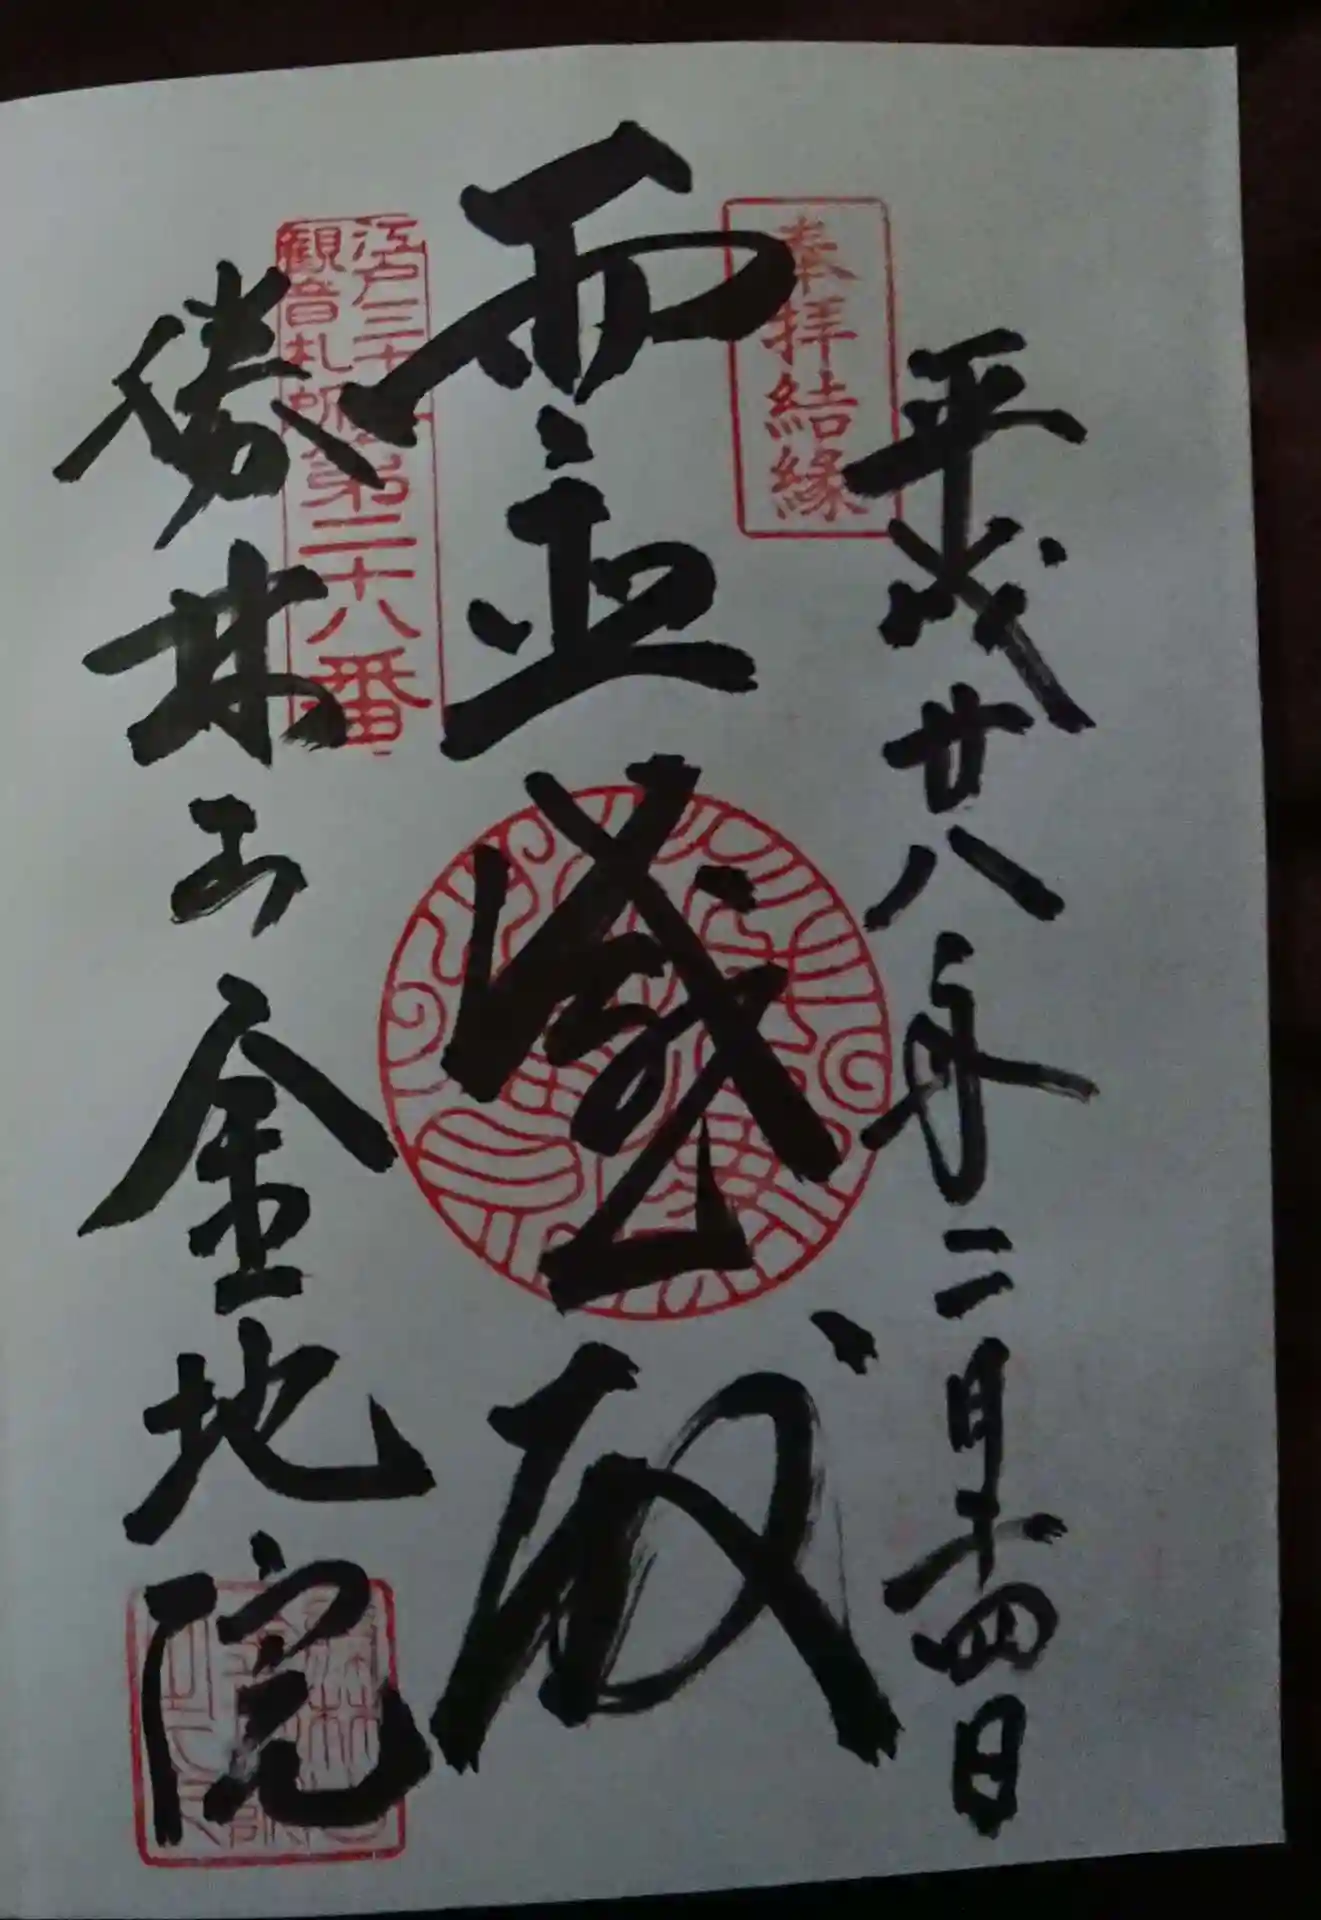 奉拝結縁
平成廿八年二月十四日
霊感殿
江戸三十三
観音札所
第二十八番
勝林山金地院